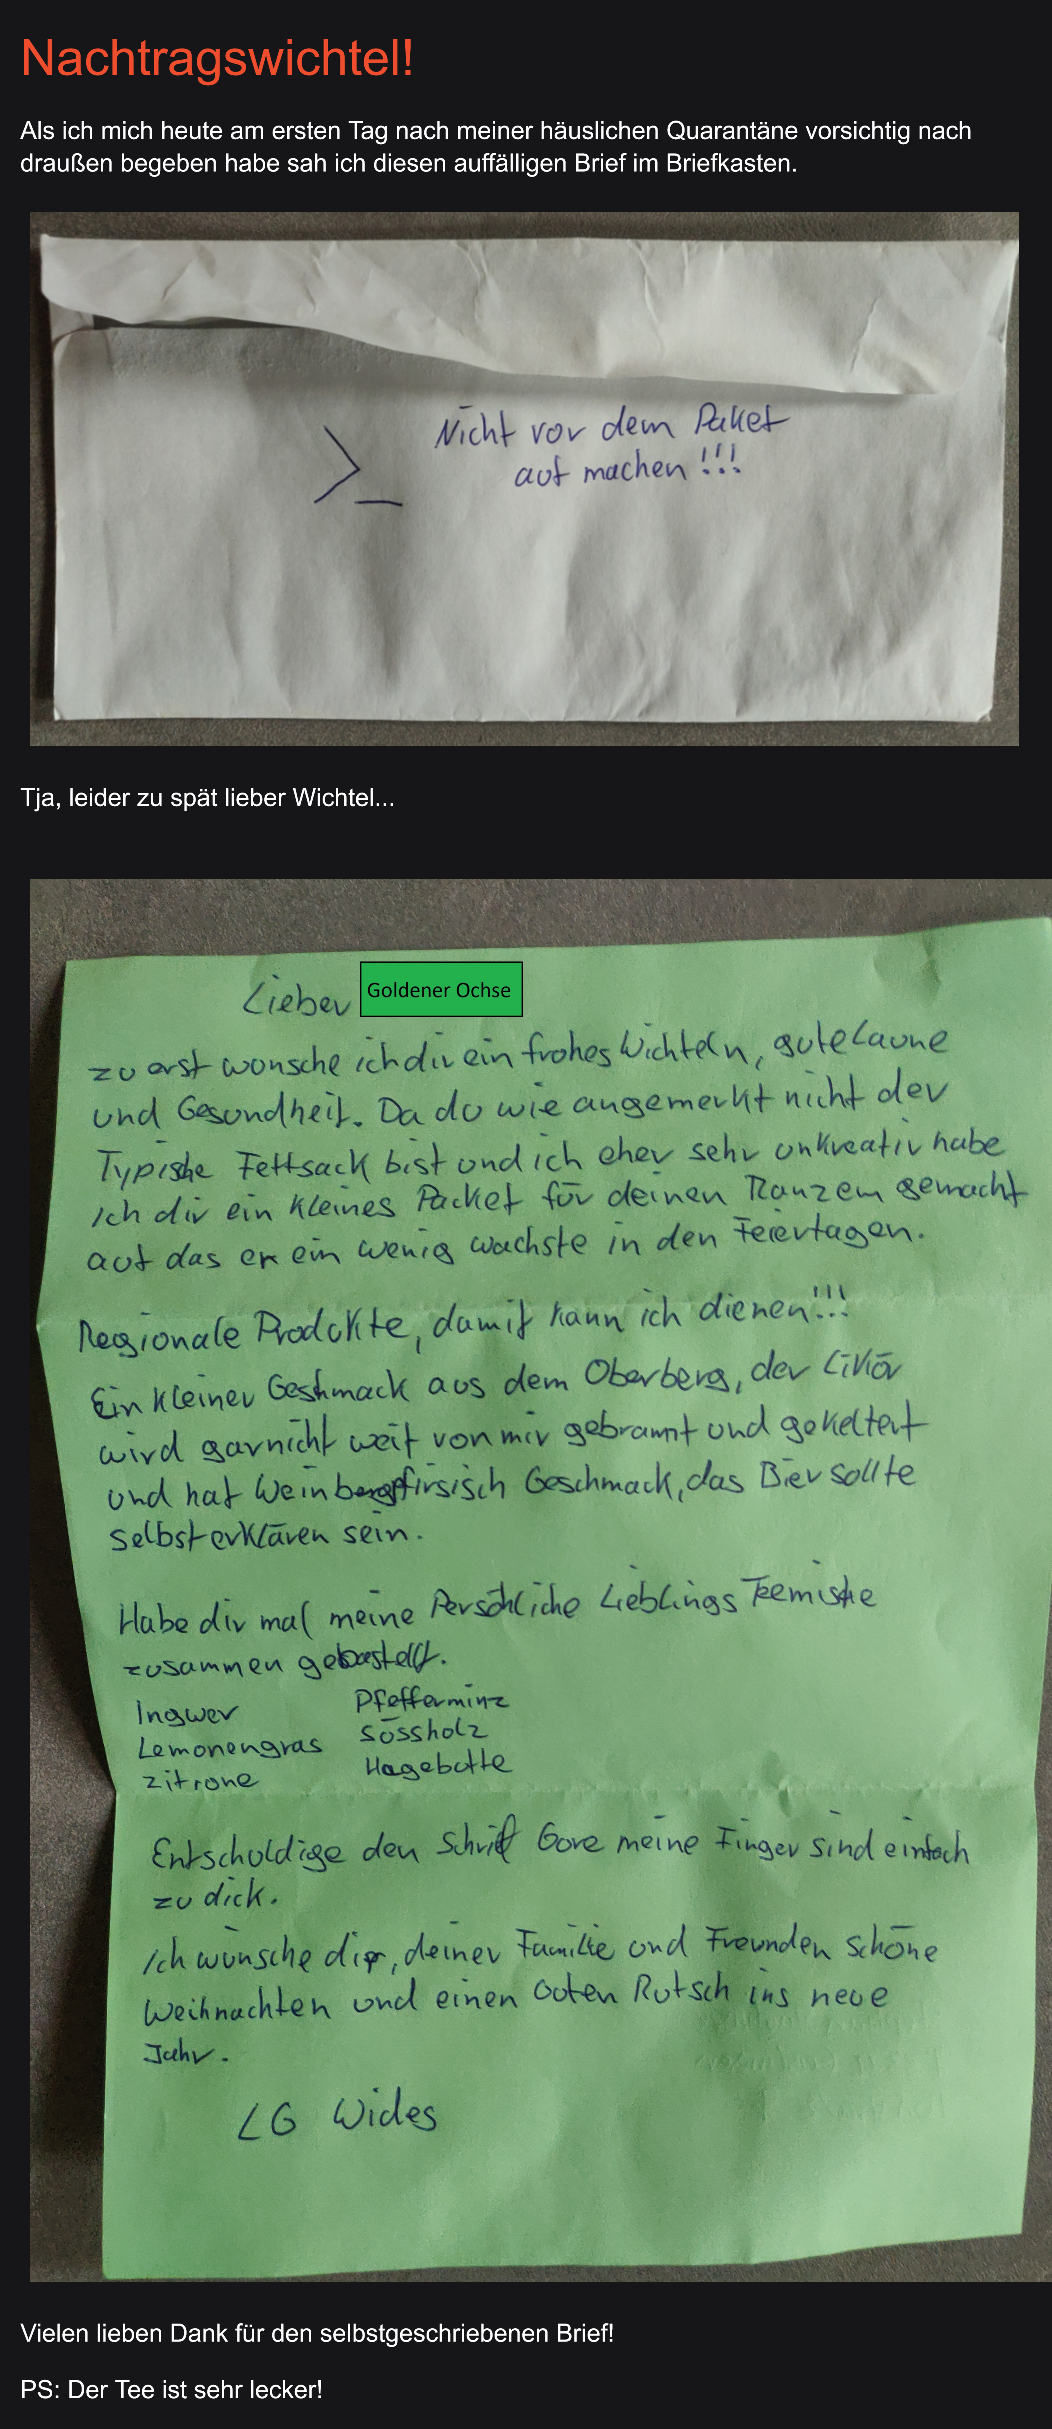 Nachtragswichtel!
Als ich mich heute am ersten Tag nach meiner häuslichen Quarantäne vorsichtig nach
draußen begeben habe sah ich diesen auffälligen Brief im Briefkasten.
>_ Nicht vor dem Paket
auf machen!!!
Tja, leider zu spät lieber Wichtel...
Lieber Goldener Ochse
zu erst wünsche ich dir ein frohes Wichteln, gute Laune
und Gesundheit. Da du wie angemerkt nicht der
Typishe Fettsack bist und ich eher sehr unkreativ habe
ich dir ein kleines Packet für deinen Ranzem gemacht
auf das er ein wenig wachste in den Feiertagen.
Regionale Produkte, damit kann ich dienen!!!
Ein kleiner Geshmack aus dem Oberberg, der Likör
wird garnicht weit von mir gebrannt und gekeltert
und hat Weinbergpfirsisch Geschmack, das Bier sollte
selbsterklären sein.
Habe dir mal meine Persöhliche Lieblings Teemishe
zusammen gebastelt.
Ingwer Pfefferminz
Lemonengras Süssholz
Zitrone Hagebutte
Entschuldige den Schrift Gore meine Finger sind einfach
zu dick.
Ich wünsche dir, deiner Familie und Freunden schöne
Weihnachten und einen Guten Rutsch ins neue
Jahr.
LG Wides
Vielen lieben Dank für den selbstgeschriebenen Brief!
PS: Der Tee ist sehr lecker!